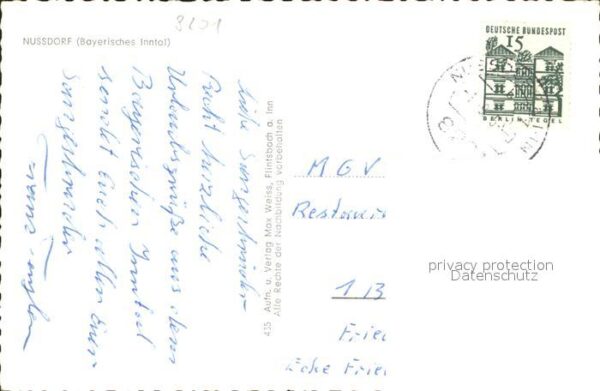 8201
NUSSDORF (Bayerisches Inntal)
Liebe Sangesbrüder
Recht herzliche
Urlaubsgrüße aus dem
Bayerischen Inntal
sendet Euch allen Euer
Sangesbruder
Franz
435 Aufn. u. Verlag Max Weiss, Flintsbach a. Inn
Alle Rechte der Nachbildung vorbehalten
DEUTSCHE BUNDESPOST
15
BERLIN-TEGEL
MGV
1 B
Fried
Ecke Fried
privacy protection
Datenschutz